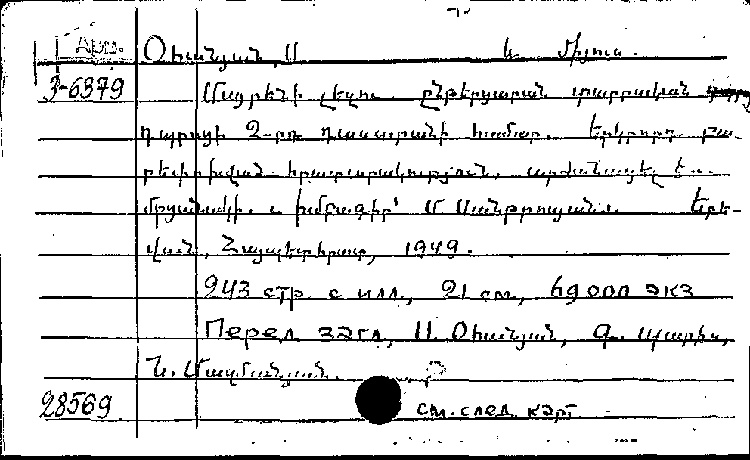 Арм. Օհանյան, Ս և մյուս.
3-6379 Մայրենի լեզու ընթերցարան տարրական
դպրոցի 2-րդ դասարանի համար. Երկրորդ բա-
րեփոխված հրատարակություն, արժանացել է
մրցանակի. խմբագիր՝ Մ Սանթրոսյան. Երե-
վան, Հայպետհրատ, 1949.
243 стр. с илл., 21 см, 69000 экз
Перед загл, Ս. Օհանյան, Գ.
Ն. Մազմանյան.
28569 см. след карт